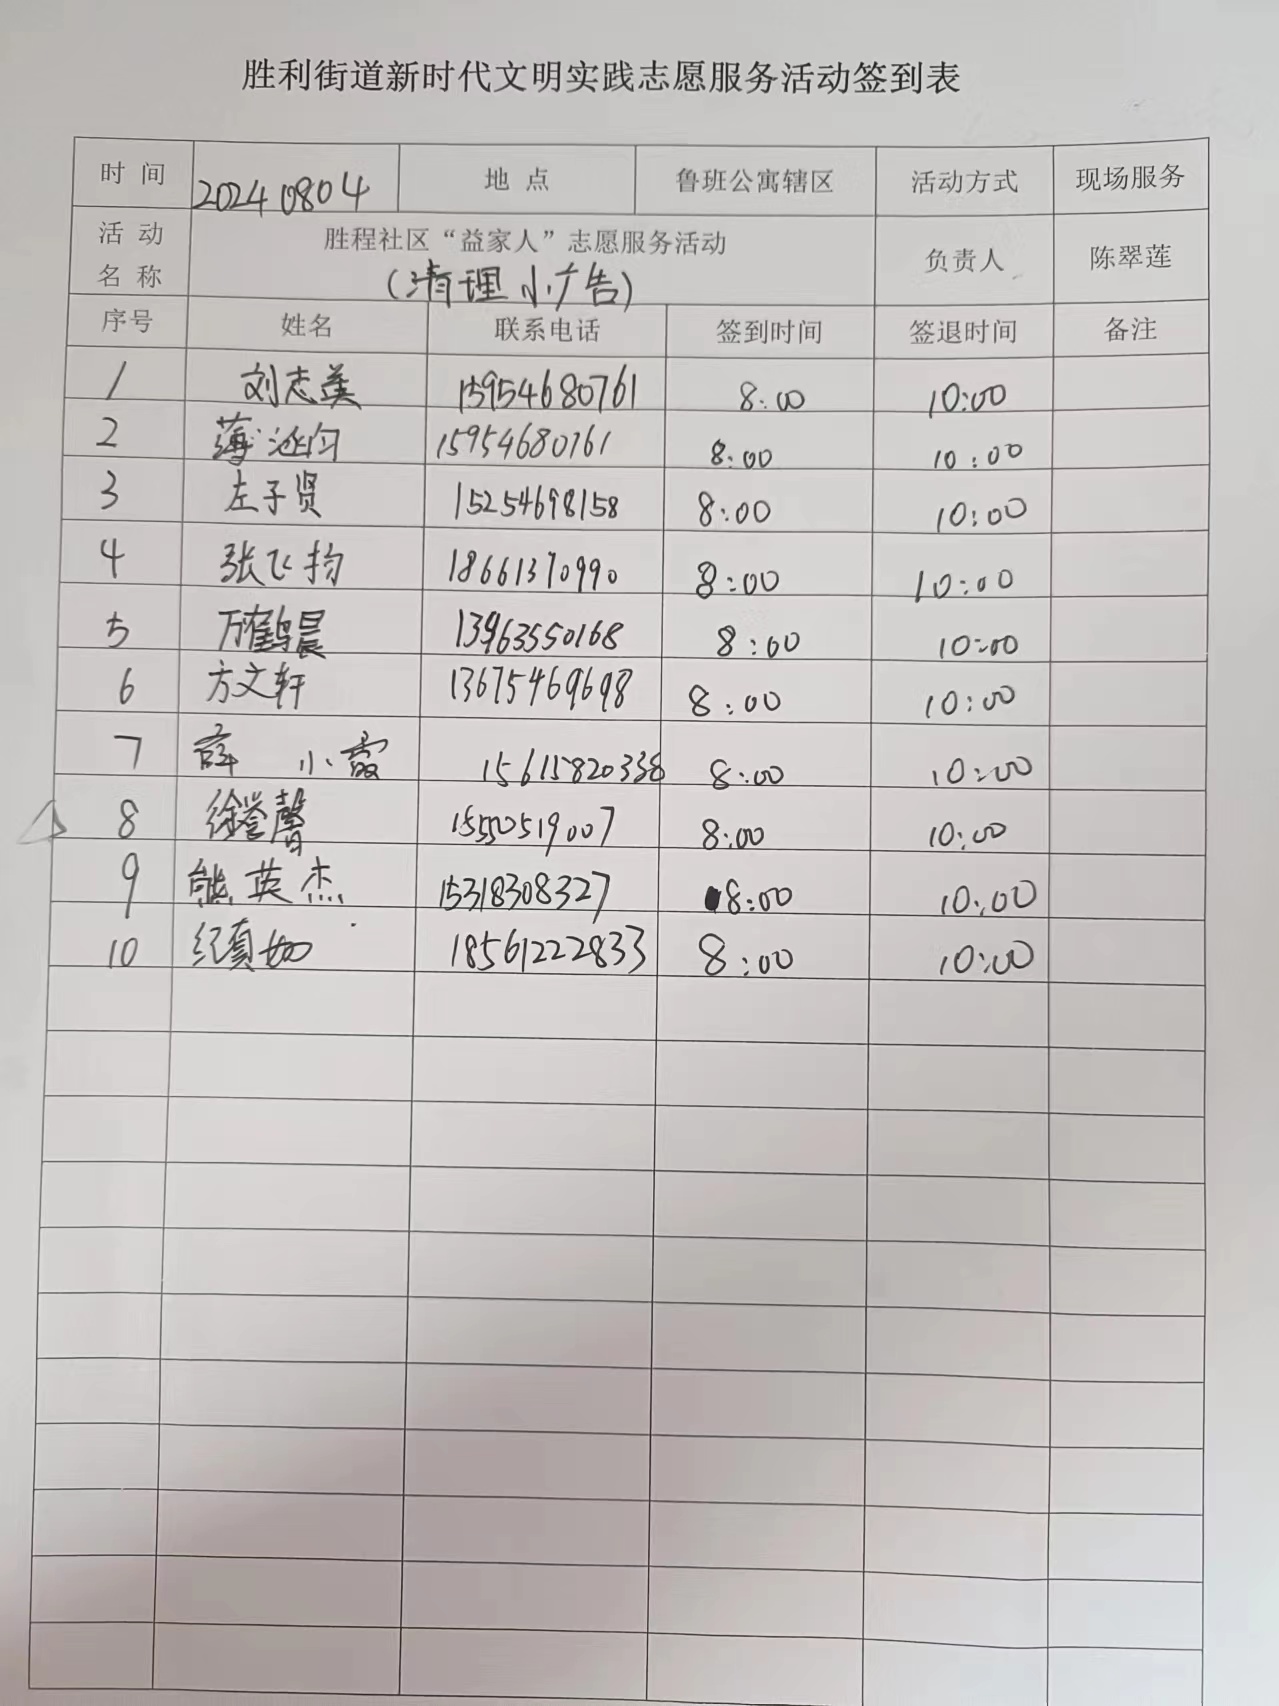 胜利街道新时代文明实践志愿服务活动签到表
时 间 20240804 地 点 鲁班公寓辖区 活动方式 现场服务
活 动 名 称 胜程社区“益家人”志愿服务活动 负责人 陈翠莲
(清理小广告)
序号 姓名 联系电话 签到时间 签退时间 备注
1 刘志美 15954680761 8:00 10:00
2 薄涵匀 15954680761 8:00 10:00
3 左子贤 15254698158 8:00 10:00
4 张飞扬 18661370990 8:00 10:00
5 万鹤晨 13963550168 8:00 10:00
6 方文轩 13675469698 8:00 10:00
7 薛 小霞 15615820338 8:00 10:00
8 徐誉馨 15550519007 8:00 10:00
9 熊英杰 15318308327 8:00 10:00
10 纪真如 18561222833 8:00 10:00